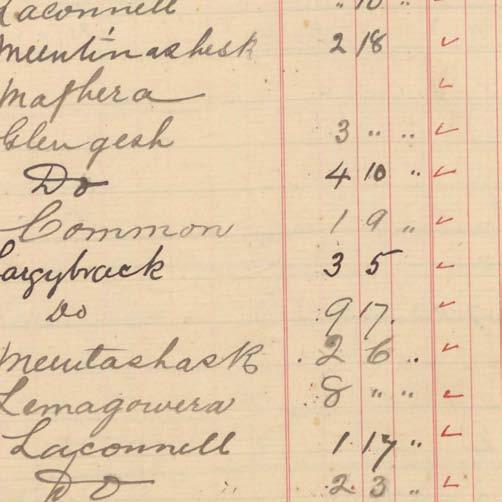 Laconnell " 10 "
Meentinashesk 2 18
Maghera
Glengesh 3 " "
Do 4 10 "
Common 1 9 "
Largybrack 3 5
Do 9 17.
Meentashask 2 6 "
Lemagowera 8 " "
Laconnell 1 17 "
Do 2 3 "